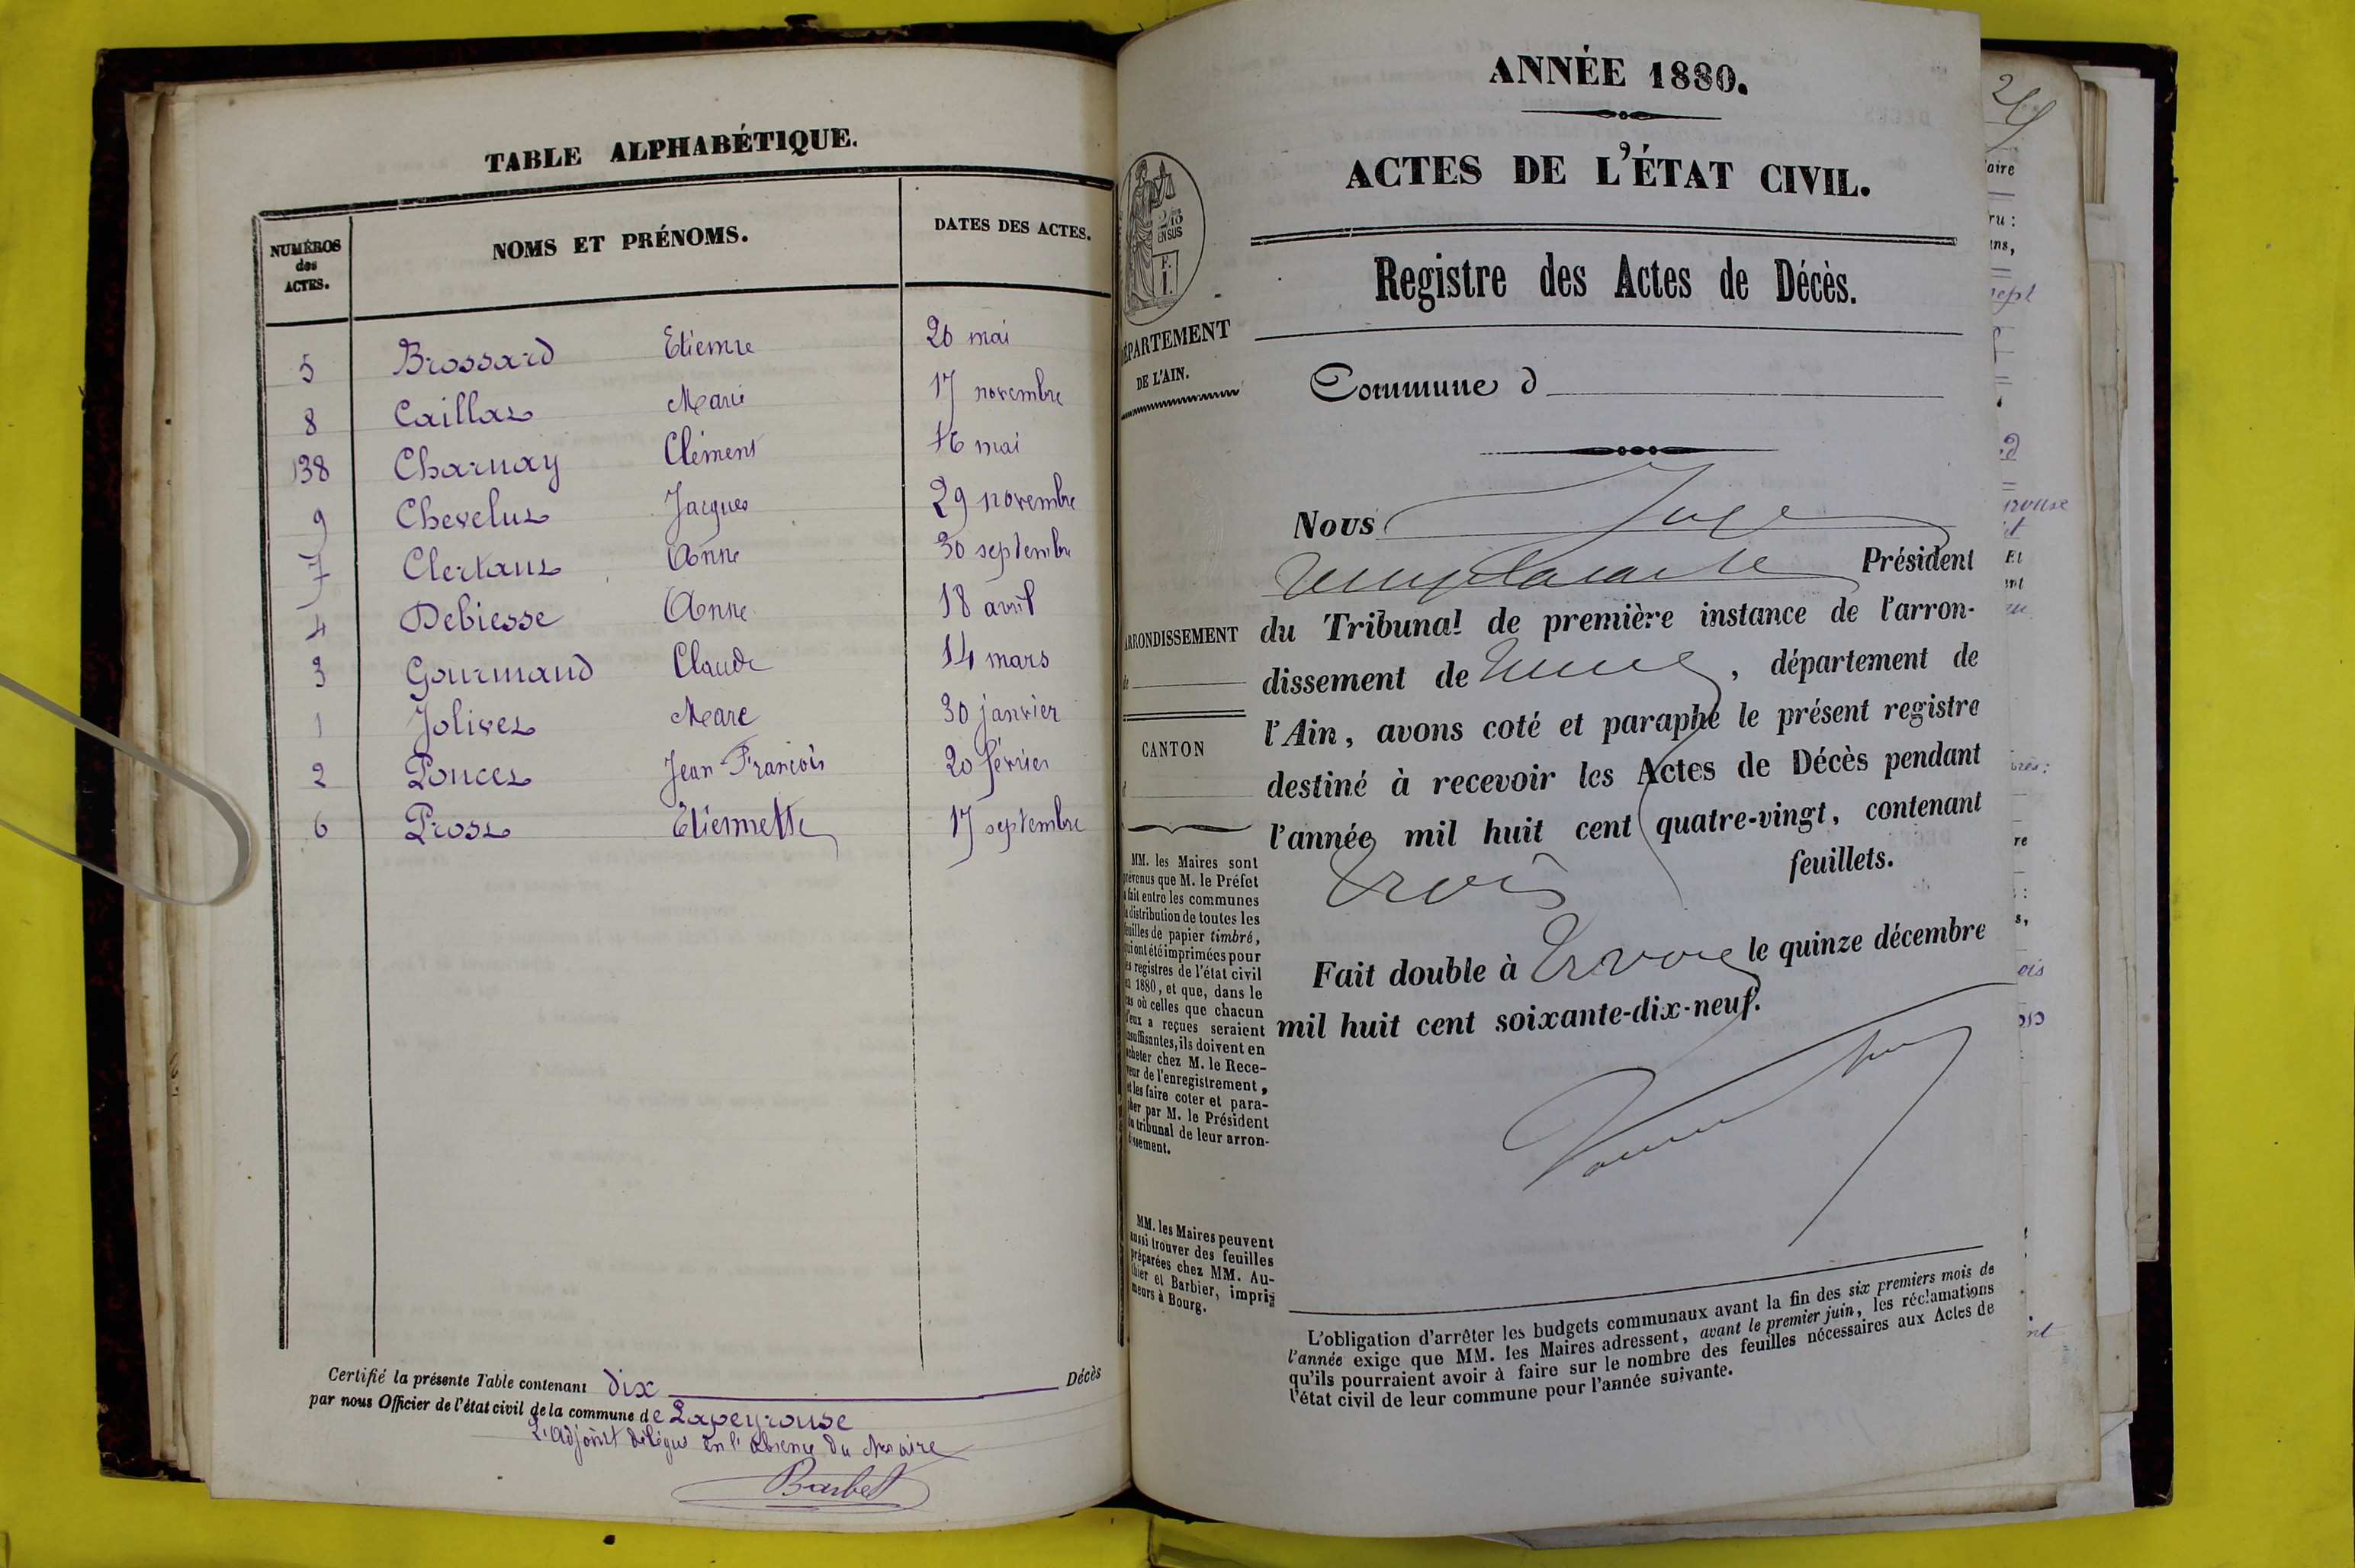 TABLE ALPHABÉTIQUE.
NUMÉROS des ACTES. NOMS ET PRÉNOMS. DATES DES ACTES.
5 Brossard Etienne 26 mai
8 Caillas Marie 17 novembre
138 Charnay Clément 16 mai
9 Chevelus Jacques 29 novembre
7 Clertans Anne 30 septembre
4 Debiesse Anne 18 avril
3 Gourmand Claude 14 mars
1 Jolivet Marc 30 janvier
2 Poncet Jean-François 20 février
6 Prost Etiennette 17 septembre
Certifié la présente Table contenant dix Décès
par nous Officier de l'état civil de la commune de Lapeyrouse
L'Adjoint délégué en l'absence du Maire
Barbet
ANNÉE 1880.
ACTES DE L'ÉTAT CIVIL.
Registre des Actes de Décès.
DÉPARTEMENT
DE L'AIN.
Commune d
Nous Juge
remplaçant le Président
du Tribunal de première instance de l'arron-
dissement de , département de
l'Ain, avons coté et paraphé le présent registre
destiné à recevoir les Actes de Décès pendant
l'année mil huit cent quatre-vingt, contenant
trois feuillets.
Fait double à Trévoux le quinze décembre
mil huit cent soixante-dix-neuf.
ARRONDISSEMENT
de
CANTON
d
MM. les Maires sont
prévenus que M. le Préfet
a fait entre les communes
la distribution de toutes les
feuilles de papier timbré,
qui ont été imprimées pour
les registres de l'état civil
en 1880, et que, dans le
cas où celles que chacun
d'eux a reçues seraient
insuffisantes, ils doivent en
acheter chez M. le Rece-
veur de l'enregistrement,
et les faire coter et para-
pher par M. le Président
du tribunal de leur arron-
dissement.
MM. les Maires peuvent
aussi trouver des feuilles
préparées chez MM. Au-
thier et Barbier, impri-
meurs à Bourg.
L'obligation d'arrêter les budgets communaux avant la fin des six premiers mois de
l'année exige que MM. les Maires adressent, avant le premier juin, les réclamations
qu'ils pourraient avoir à faire sur le nombre des feuilles nécessaires aux Actes de
l'état civil de leur commune pour l'année suivante.